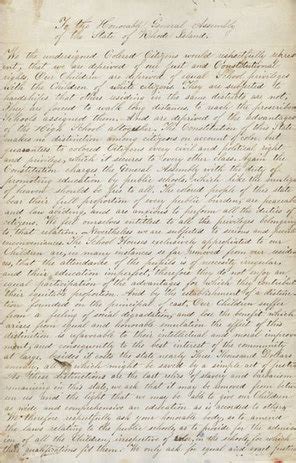 To the Honorable General Assembly
of the State of Rhode Island.
We the undersigned Colored Citizens would respectfully represent,
that we are deprived of our just and Constitutional
rights. Our Children are deprived of equal School privileges
with the Children of white citizens. They are subjected to
hardships that others residing in the same districts are not,
They are obliged to long distances to reach the proscribed
Schools assigned them. And are deprived of the advantages
of the High School altogether. The Constitution of this State
makes no distinction among citizens on account of color, but
guarantees to colored Citizens every civil and political right
and privilege, which it secures to every other class. Again the
Constitution charges the General Assembly with the duty of
promoting education by public schools, which like the bounties
of heaven should be free to all. The colored people of this state
bear their full proportion of every public burden, are peaceable
and law abiding, and are anxious to perform all the duties of
citizens. We feel ourselves entitled to all the
that relation. Nevertheless we are subjected to serious and
inconveniences. The School Houses exclusively appropriated to our
Children are in many instances so far removed from our residences,
that the attendance of the pupils must of necessity be
and their education imperfect, thus they do not enjoy an
equal participation of the advantages for which they contribute
their equitable proportion. And by the establishment of a distinction
founded on the principal of cast Our Children suffer
from a feeling of social degradation, and lose the benefit which
arises from equal and honorable emulation the effect of this
distinction is unfavorable to their intellectual and
and consequently to the best interest of the community
at large. Besides it costs the state nearly Three Thousand Dollars
annually, all of which might be saved by a single act of justice
As these distinctions are the last relics of slavery and
remaining in this state, we ask that it may be removed from between
us and the light that we may be able to give our Children
as wide and comprehensive an education as is accorded to others.
We therefore respectfully ask your honorable body, so to amend
the laws relating to the public schools, as to provide for the admission
of all the Children, irrespective of color, to the schools for which
their qualifications fit them. We only ask for equal and exact justice